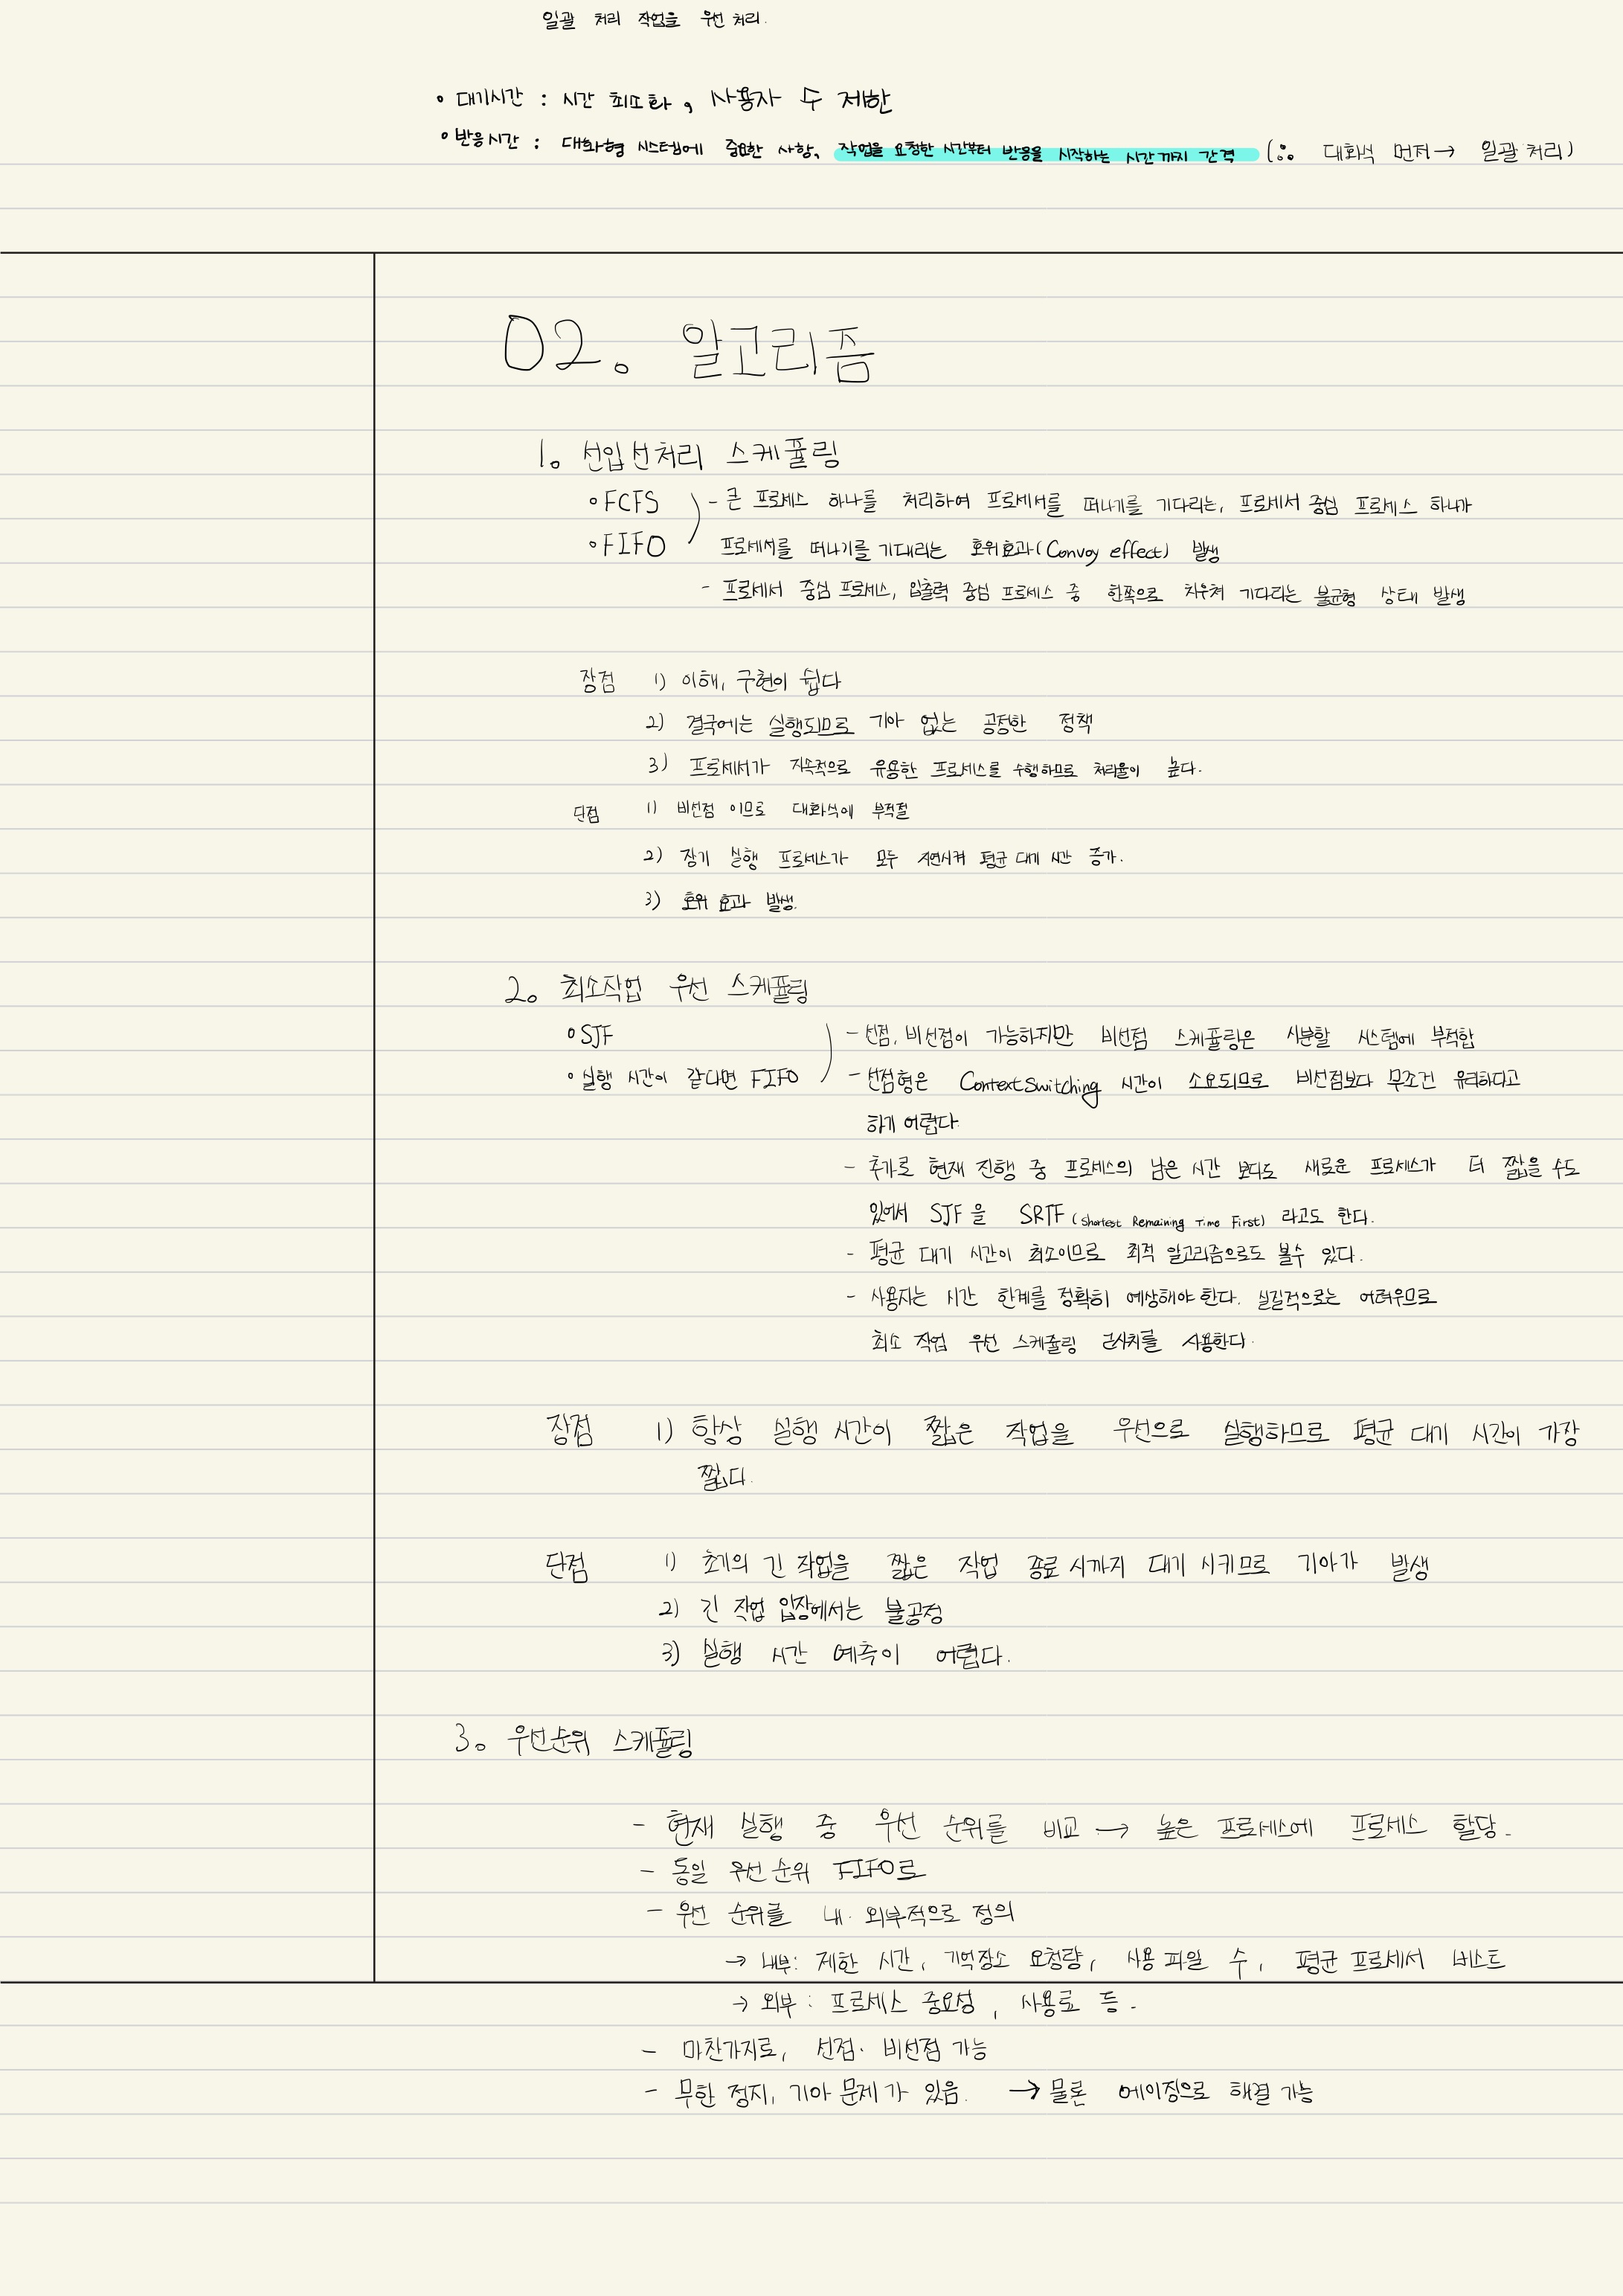 일괄 처리 작업을 우선 처리.
• 대기시간 : 시간 최소화, 사용자 수 제한
• 반응시간 : 대화형 시스템에 중요한 사항, 작업을 요청한 시간부터 반응을 시작하는 시간까지 간격 (∴ 대화식 먼저 → 일괄 처리)
02. 알고리즘
1. 선입선처리 스케쥴링
• FCFS - 큰 프로세스 하나를 처리하여 프로세서를 떠나기를 기다리는, 프로세서 중심 프로세스 하나가
• FIFO 프로세서를 떠나기를 기대리는 호위효과(Convoy effect) 발생
- 프로세서 중심 프로세스, 입출력 중심 프로세스 중 한쪽으로 치우쳐 기다리는 불균형 상태 발생
장점 1) 이해, 구현이 쉽다
2) 결국에는 실행되므로 기아 없는 공정한 정책
3) 프로세서가 지속적으로 유용한 프로세스를 수행하므로 처리율이 높다.
단점 1) 비선점 이므로 대화식에 부적절
2) 장기 실행 프로세스가 모두 지연시켜 평균 대기 시간 증가.
3) 호위 효과 발생.
2. 최소작업 우선 스케쥴링
• SJF - 선점, 비선점이 가능하지만 비선점 스케쥴링은 시분할 시스템에 부적합
• 실행 시간이 같다면 FIFO - 선점형은 Context Switching 시간이 소요되므로 비선점보다 무조건 유리하다고
하기 어렵다
- 추가로 현재 진행 중 프로세스의 남은 시간 보다도 새로운 프로세스가 더 짧을 수도
있어서 SJF을 SRTF (Shortest Remaining Time First) 라고도 한다.
- 평균 대기 시간이 최소이므로 최적 알고리즘으로도 볼수 있다.
- 사용자는 시간 한계를 정확히 예상해야 한다. 실질적으로는 어려우므로
최소 작업 우선 스케쥴링 근사치를 사용한다.
장점 1) 항상 실행 시간이 짧은 작업을 우선으로 실행하므로 평균 대기 시간이 가장
짧다.
단점 1) 초기의 긴 작업을 짧은 작업 종료 시까지 대기 시키므로 기아가 발생
2) 긴 작업 입장에서는 불공정
3) 실행 시간 예측이 어렵다.
3. 우선순위 스케쥴링
- 현재 실행 중 우선 순위를 비교 → 높은 프로세스에 프로세스 할당.
- 동일 우선 순위 FIFO로
- 우선 순위를 내·외부적으로 정의
→ 내부: 제한 시간, 기억장소 요청량, 사용 파일 수, 평균 프로세서 버스트
→ 외부 : 프로세스 중요성, 사용료 등.
- 마찬가지로, 선점·비선점 가능
- 무한 정지, 기아 문제가 있음. → 물론 에이징으로 해결 가능